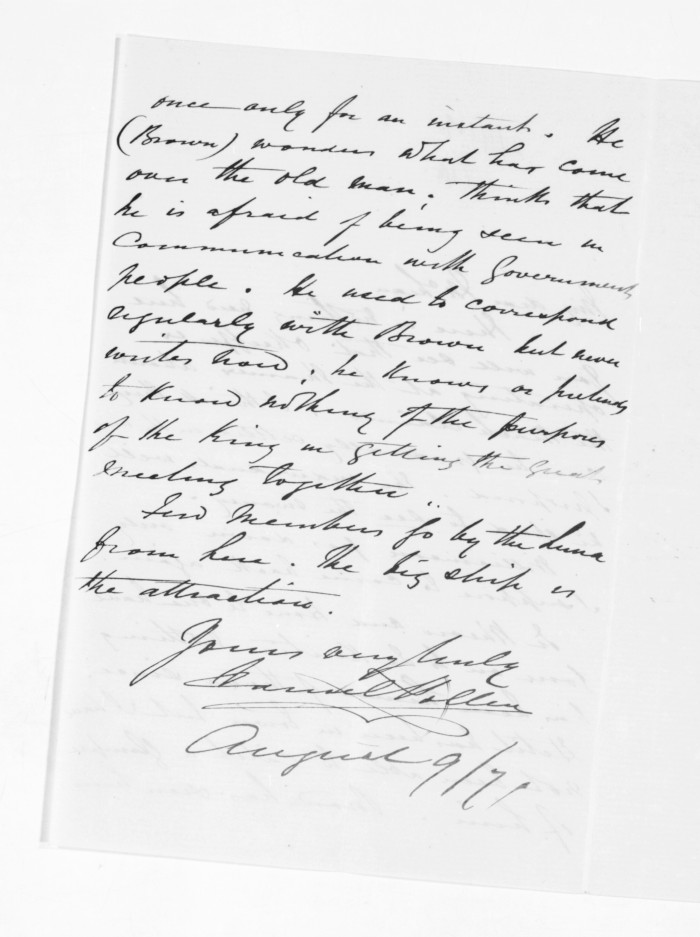 once only for an instant. He
(Brown) wonders what has come
over the old man; thinks that
he is afraid of being seen in
communication with Government
people. He used to correspond
regularly with Brown but never
writes now; he knows or pretends
to know nothing of the purposes
of the King in getting the great
meeting together..
Few Members go by the Luna
from here. The big ship is
the attraction.
Yours very truly
Daniel Pollen
August 9/71